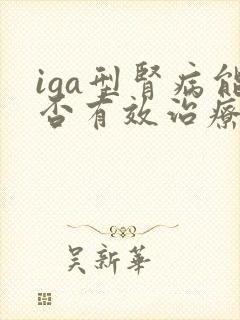 iga型腎病能
否有效治療
吴新華